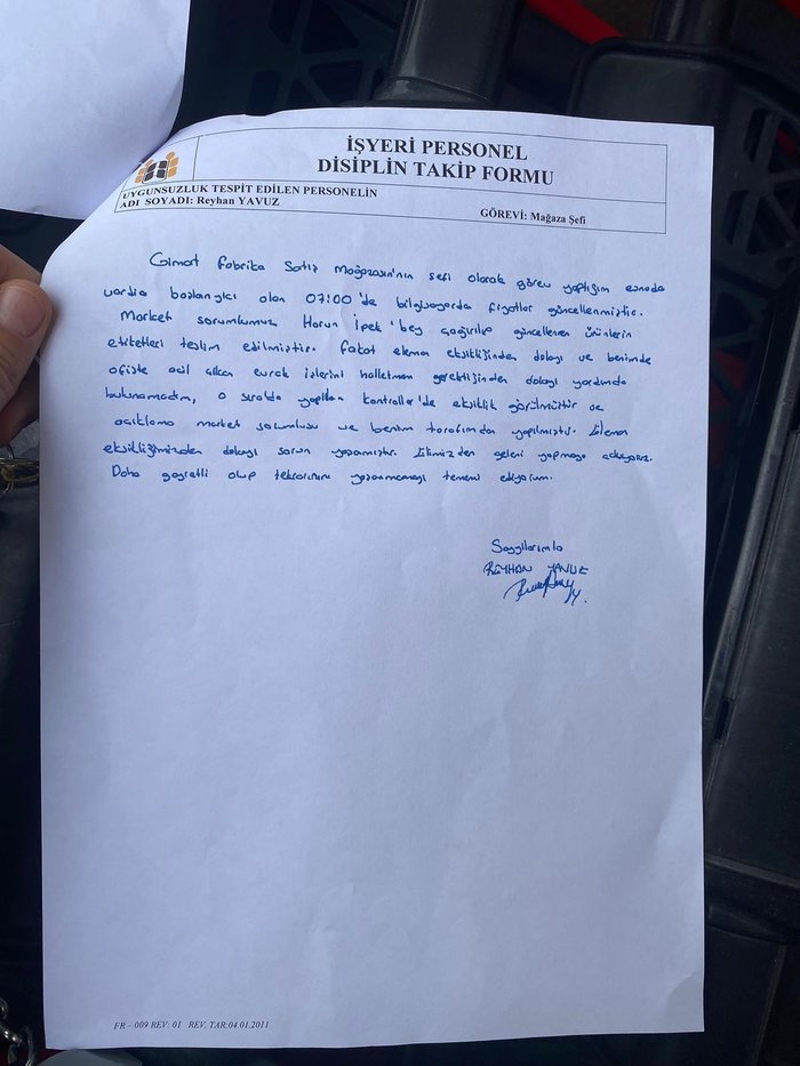 İŞYERİ PERSONEL
DİSİPLİN TAKİP FORMU
UYGUNSUZLUK TESPİT EDİLEN PERSONELİN
ADI SOYADI: Reyhan YAVUZ
GÖREVİ: Mağaza Şefi
Gimat Fabrika Satış Mağazası'nın şefi olarak görev yaptığım esnada
vardia başlangıcı olan 07:00'de bilgisayarda fiyatlar güncellenmiştir.
Market sorumlumuz Harun İpek'bey çağırılıp güncellenen ürünlerin
etiketleri teslim edilmiştir. Fakat eleman eksikliğinden dolayı ve benimde
ofiste acil çıkan evrak işlerini halletmem gerektiğinden dolayı yardımda
bulunamadım, o sırada yapılan kontroller'de eksiklik görülmüştür ve
açıklama market sorumlusu ve benim tarafımdan yapılmıştır. Eleman
eksikliğimizden dolayı sorun yaşanmıştır. Elimizden geleni yapmaya çalışıyoruz.
Daha gayretli olup tekrarının yaşanmamasını temenni ediyorum.
Saygılarımla
REYHAN YAVUZ
FR – 009 REV: 01 REV. TAR:04.01.2011